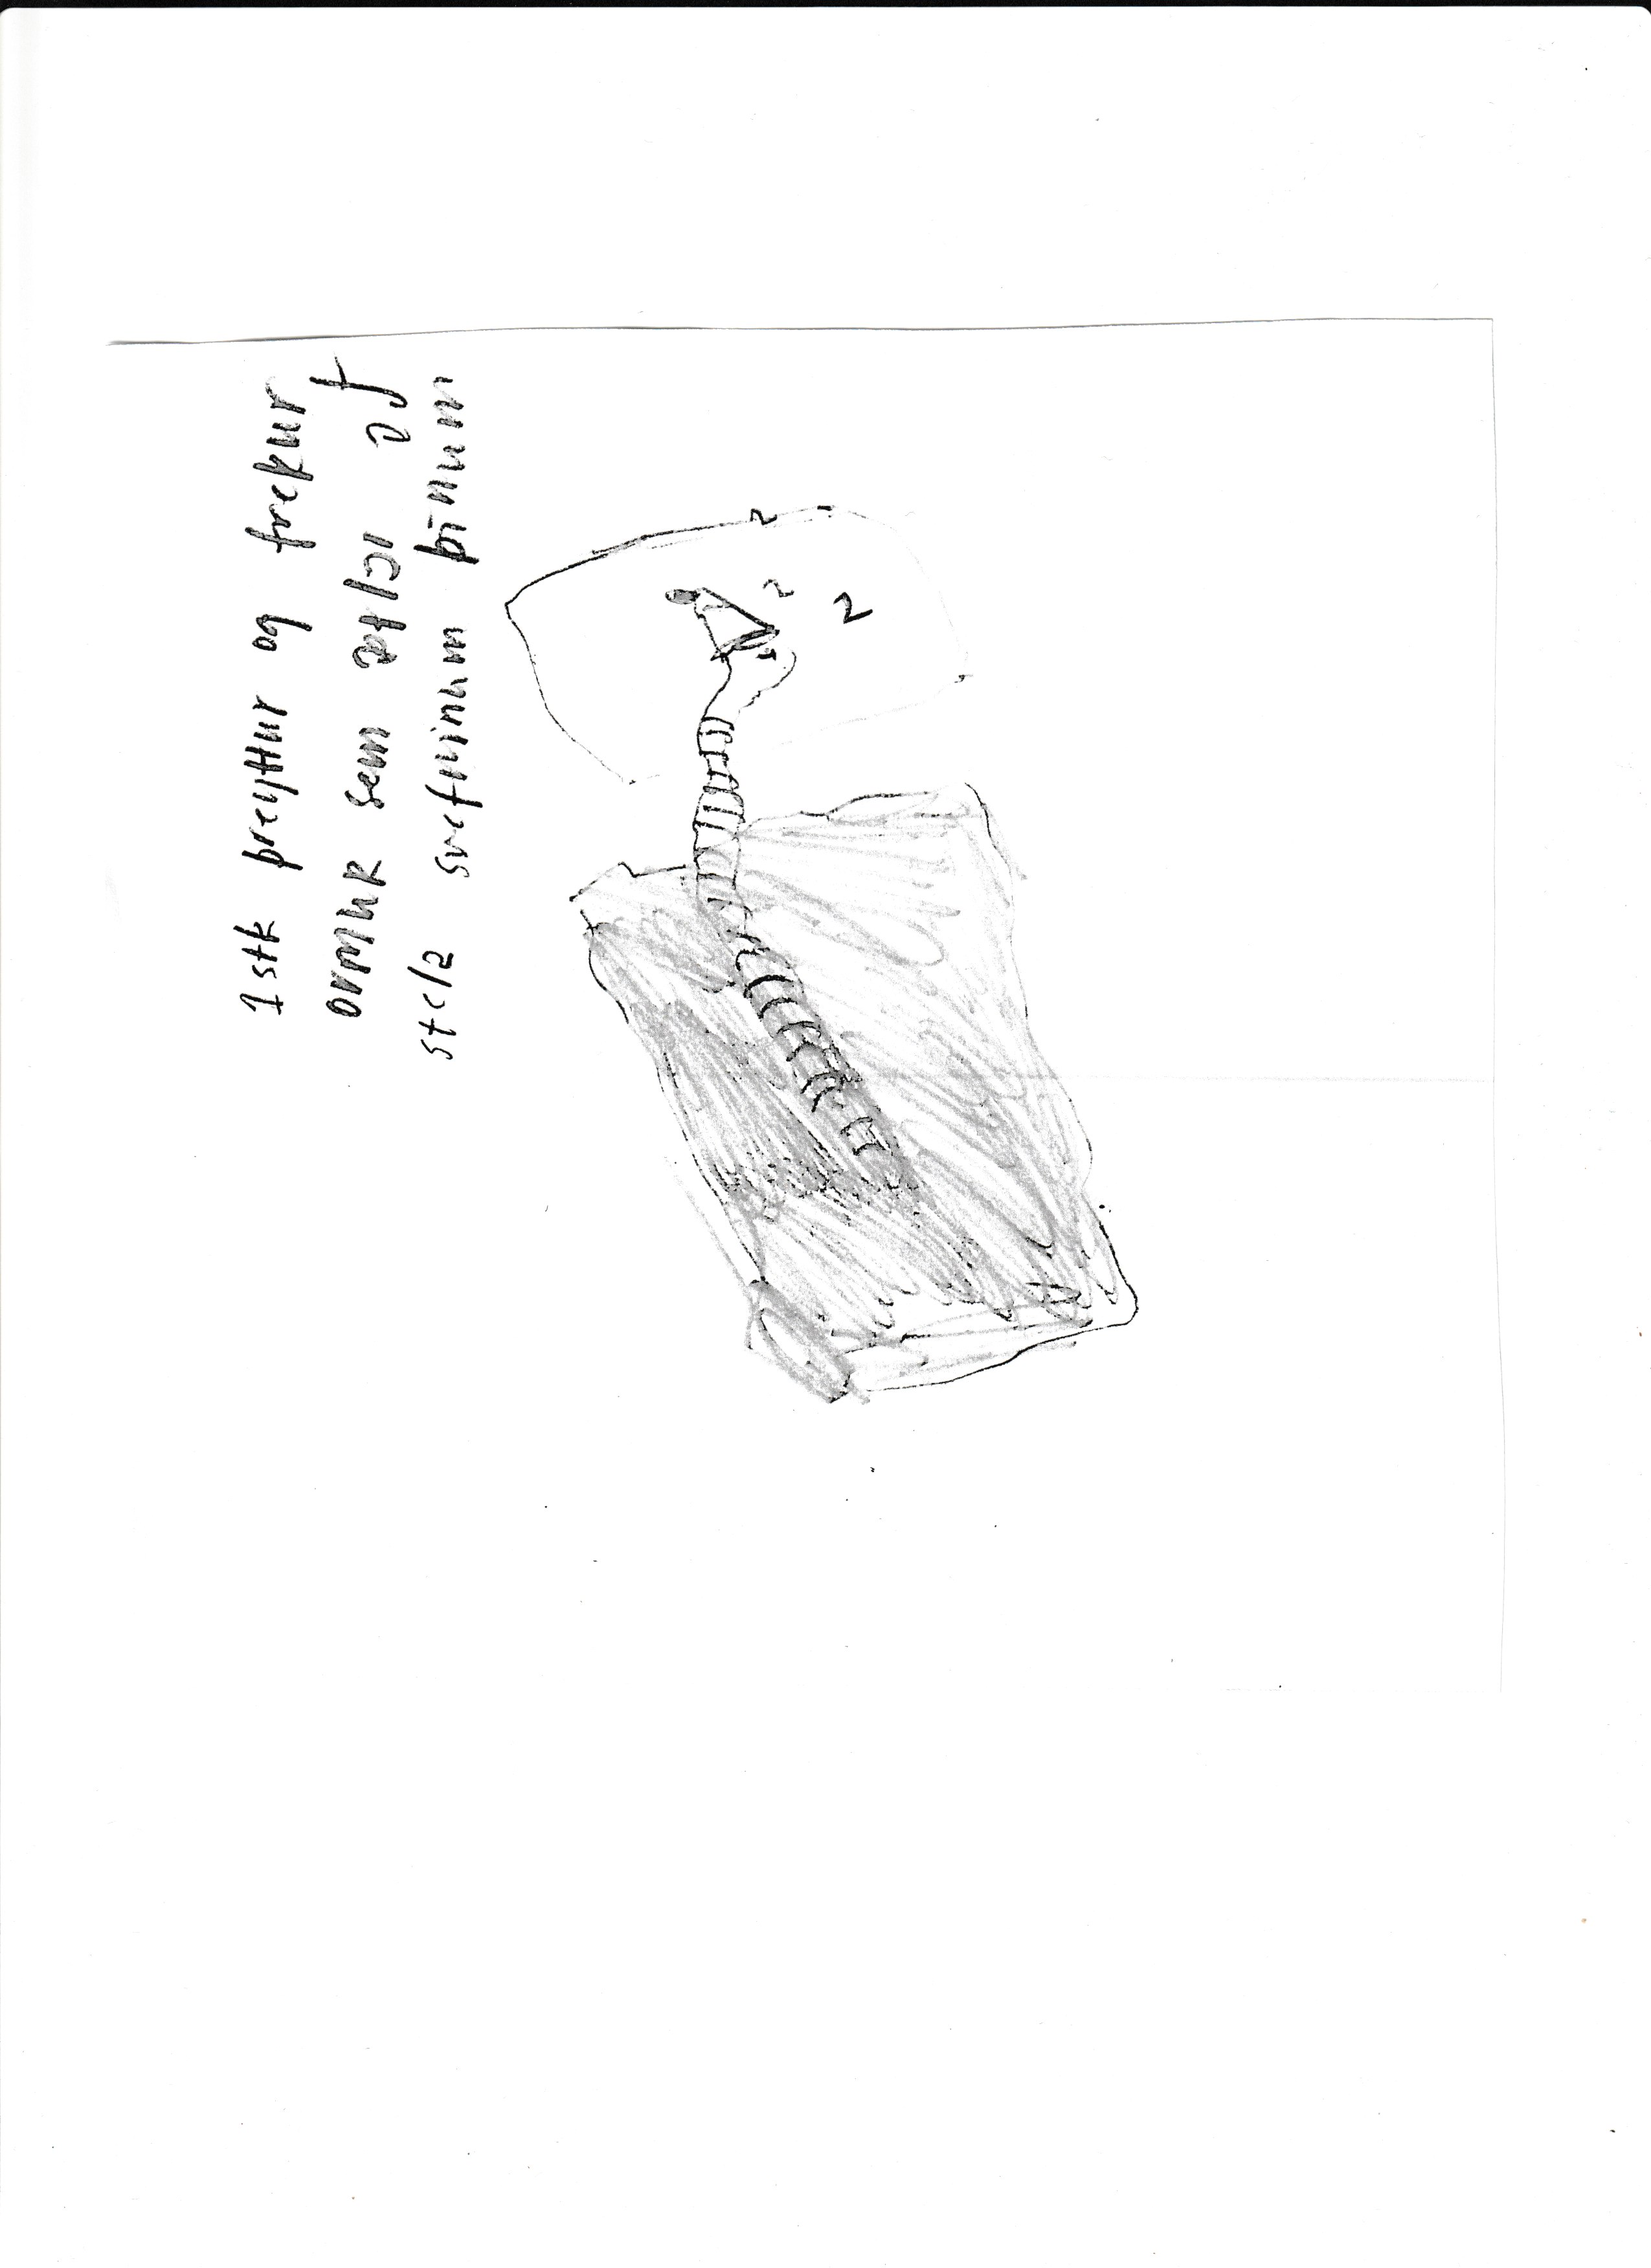 1stk þreyttur og frekur
ormuR sem ætlar að
stela svefninum þínum
z z
z